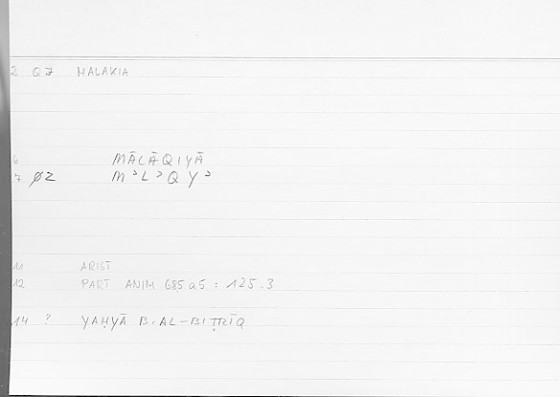 2 QZ MALAKIA
6 MĀLĀQIYĀ
7 ØZ MʾLʾQYʾ
11 ARIST
12 PART ANIM 685a5 : 125.3
14 ? YAḤYĀ B. AL-BIṬRĪQ